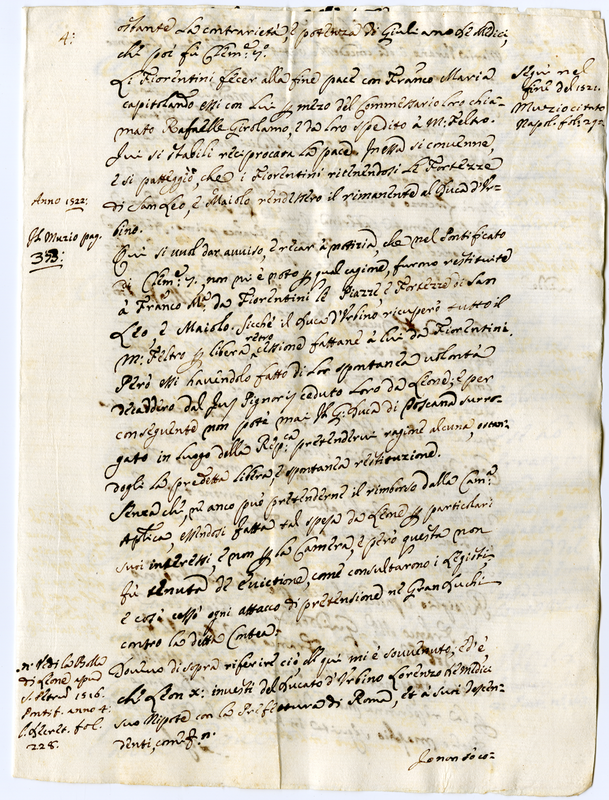 4:
ostante la contrarietà e potenza di Giuliano de Medici,
che poi fù Clem.e 7.o
Li Fiorentini fecer alla fine pace con Franco Maria
capitolando essi con lui p mezo del Commessario loro chia-
mato Rafaelle Girolamo, e da loro spedito à M. Feltro.
Qui si stabilì reciproca la pace. In essa si convenne,
e si patteggiò, che i Fiorentini ritenendosi le Fortezze
di San Leo, e Maiolo rendessero il rimanente al Duca d'Ur-
bino.
Segui nel
fine del 1521.
Muzio citato
Napol. fol. 272.
Anno 1522:
Muzio pag.
358:
Qui si vuol dar avviso, e recar à notizia, che nel Pontificato
di Clem.e 7., non mi è noto p qual cagione, furno restituite
à Franco M.a da Fiorentini le Piazze e Fortezze di San
Leo e Maiolo. Sicchè il Duca d'Urbino ricuperò tutto il
M. Feltro p libera retrocessione fattane à lui da Fiorentini.
Però essi havendolo fatto di loro spontanea volontà
decaddero dal Jus Pignoris ceduto loro da Leone; e per
conseguente non potè mai il G. Duca di Toscana surro-
gato in luogo della Rep.ca pretendervi ragione alcuna, ostan-
dogli la predetta libera e spontanea restituzione.
Senza che, nè anco può pretenderne il rimborso dalla Cam.a
Aplica essendosi fatta tal spesa da Leone p particolari
suoi interessi, e non p la Camera, e però questa non
fù tenuta de evictione, come consultarono i Legisti
e così cessò ogni attacco di pretensione ne Gran Duchi
contro la detta Contea.
n. Vedi la Bolla
di Leone apud
1516.
Pontif. anno 4.
l. Decret. fol.
228.
Dovevo di sopra riferire ciò che quì mi è souvenuto; ed è,
che Leon X: investì del Ducato d'Urbino Lorenzo de Medici
suo Nipote con la Prefettura di Roma, et à suoi descen-
denti, n.
Io non sò co-